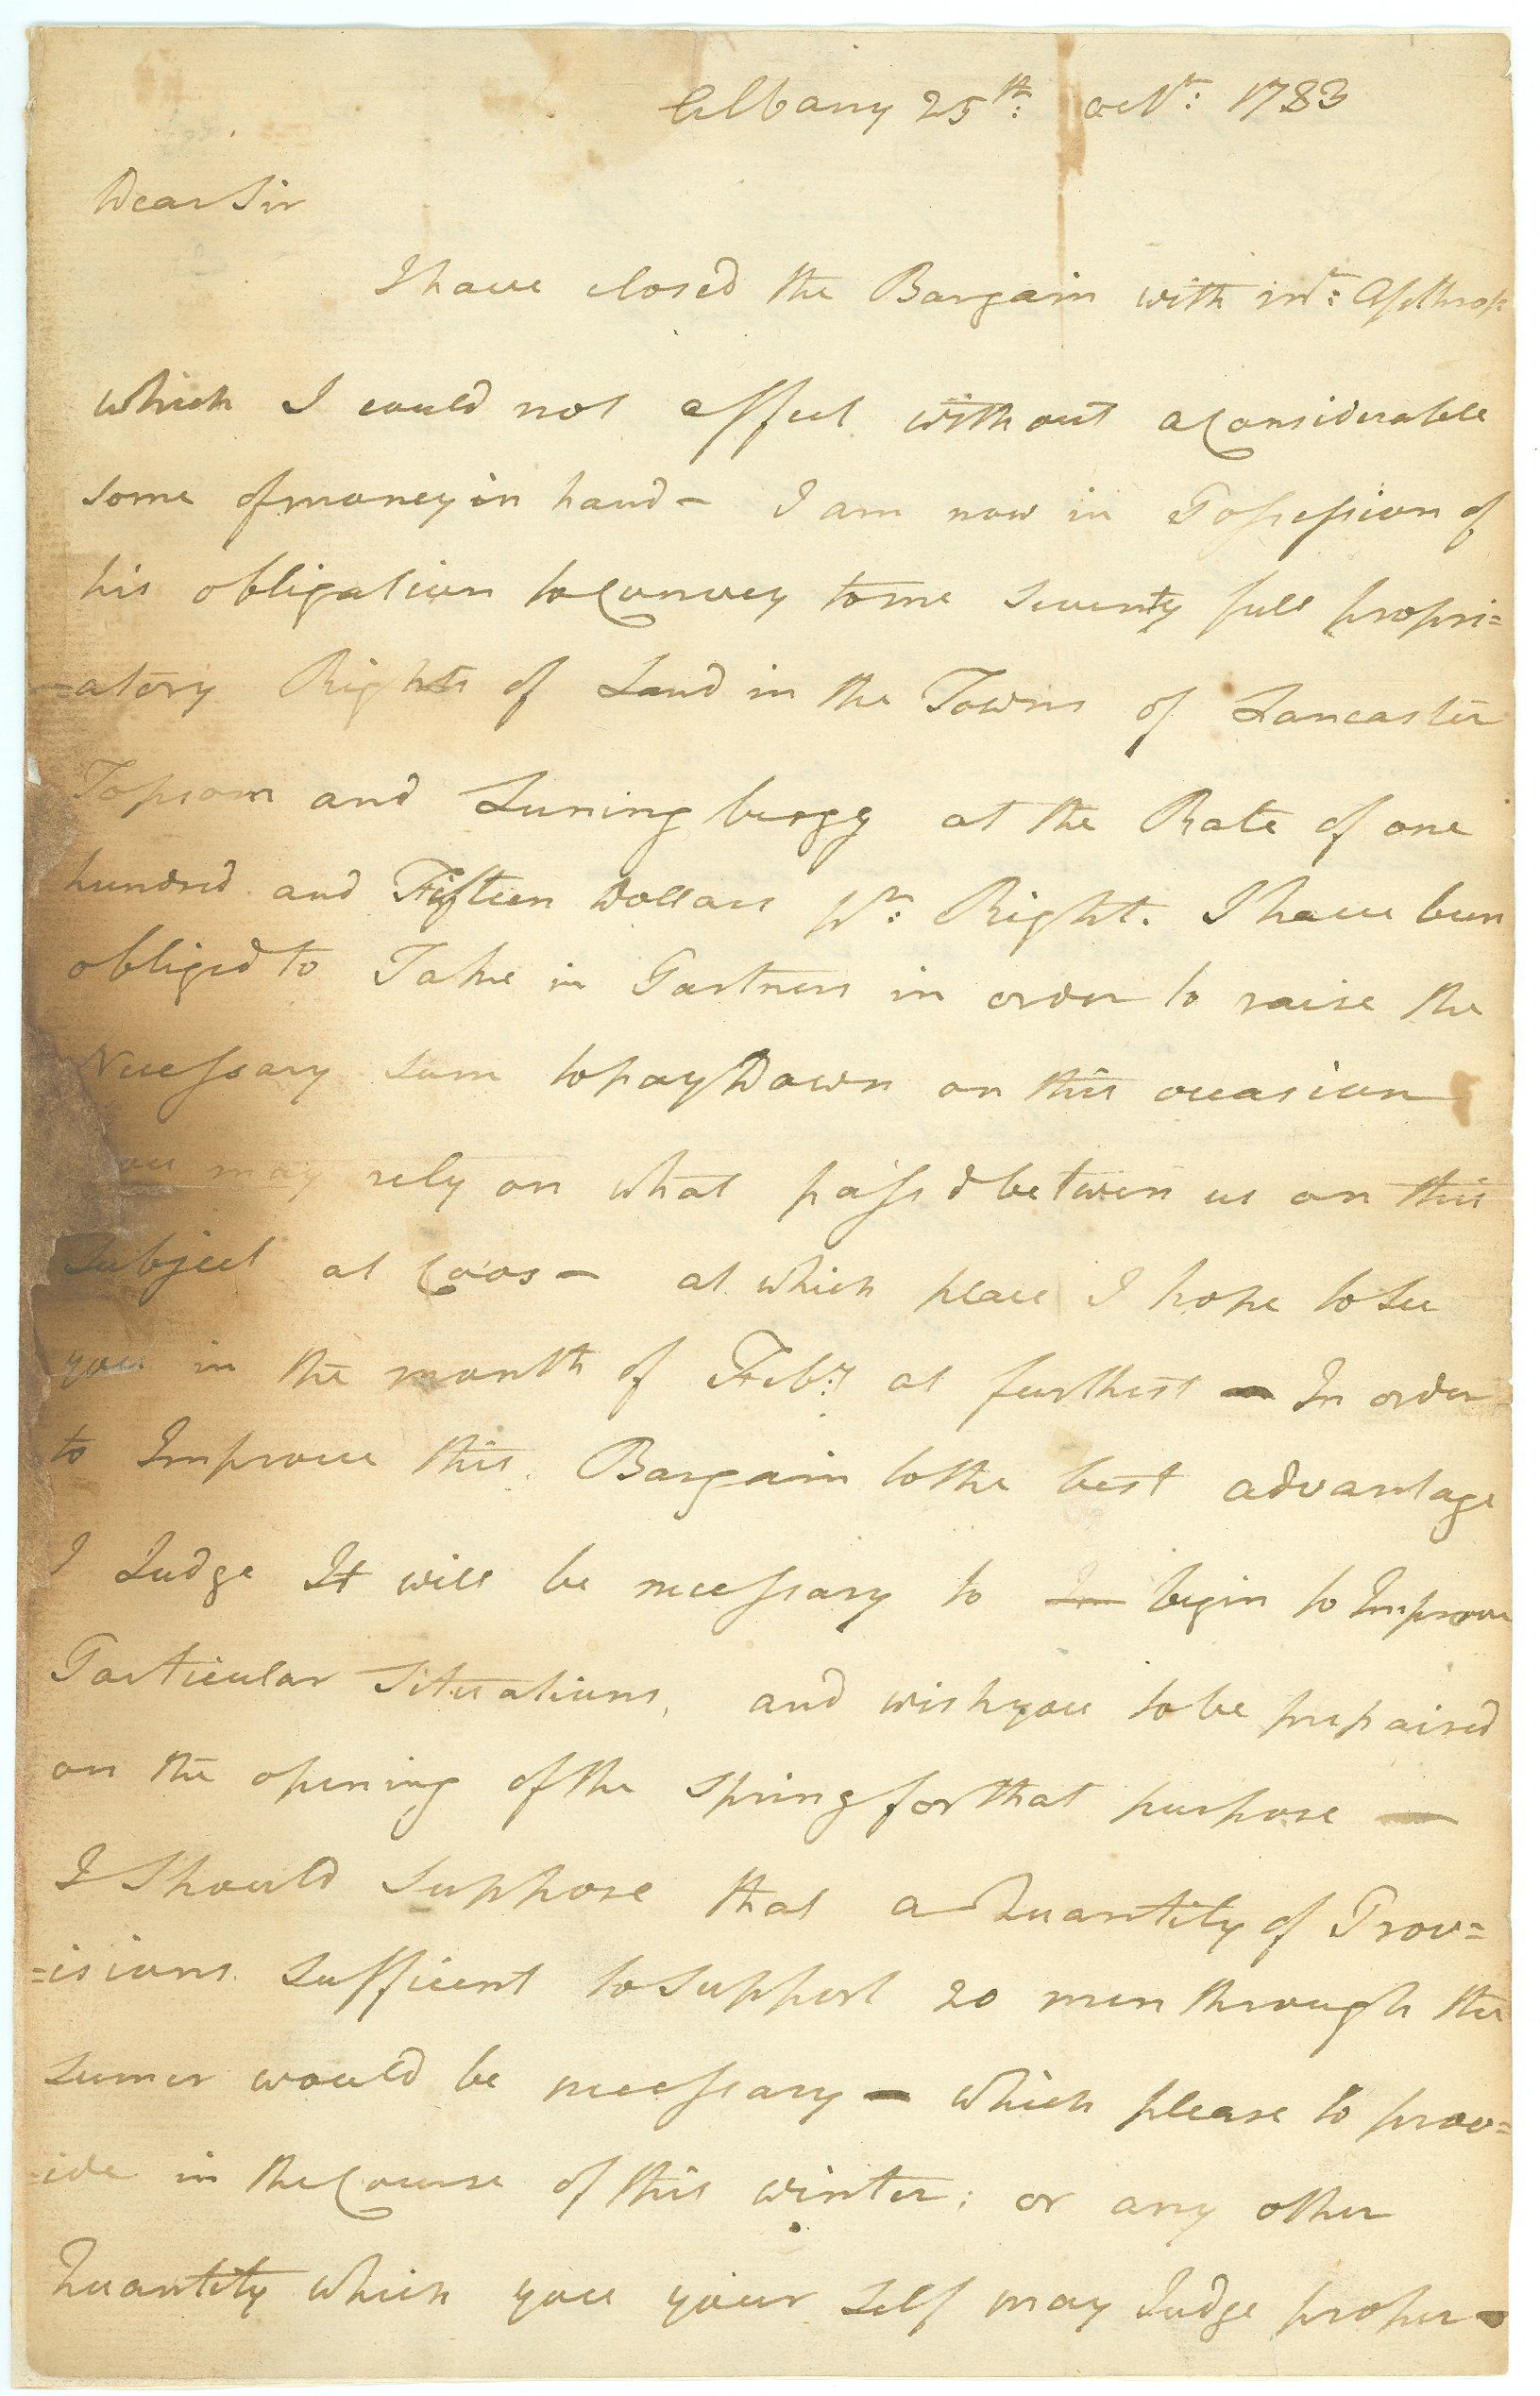 Albany 25th: octr: 1783
Dear Sir
I have closed the Bargain with Mr: Apthrop
which I could not effect without a Considerable
some of money in hand – I am now in Possession of
his obligation to Convey to me Seventy full propri=
=atory Rights of Land in the Towns of Lancaster
Topsom and Luningburgg at the Rate of one
hundred and Fifteen Dollars pr: Right. I have been
obliged to Take in Partners in order to raise the
Necessary sum to pay Down on this occasion
you may rely on what pass'd between us on this
Subject at Coos – at which place I hope to See
you in the month of Feby: at furthest – In order
to Improve this Bargain to the best advantage
I Judge It will be necessary to Im begin to Improve
Particular Situations, and wish you to be prepaired
on the opening of the Spring for that purpose —
I Should Suppose that a Quantity of Prov=
=isions Sufficent to Support 20 men through the
Sumer would be necessary – which please to prov=
=ide in the Course of this winter; or any other
Quantity which you your Self may Judge proper –